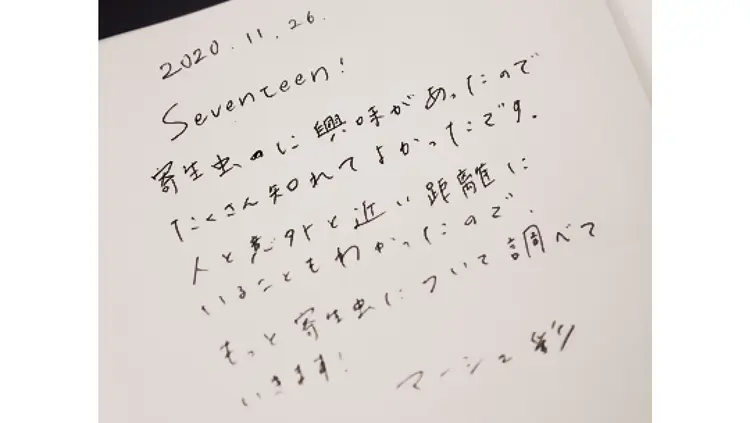 2020.11.26.
Seventeen!
寄生虫に興味があったので
たくさん知れてよかったです。
人と意外と近い距離に
いることもわかったので
もっと寄生虫について調べて
いきます!
マーシュ彩